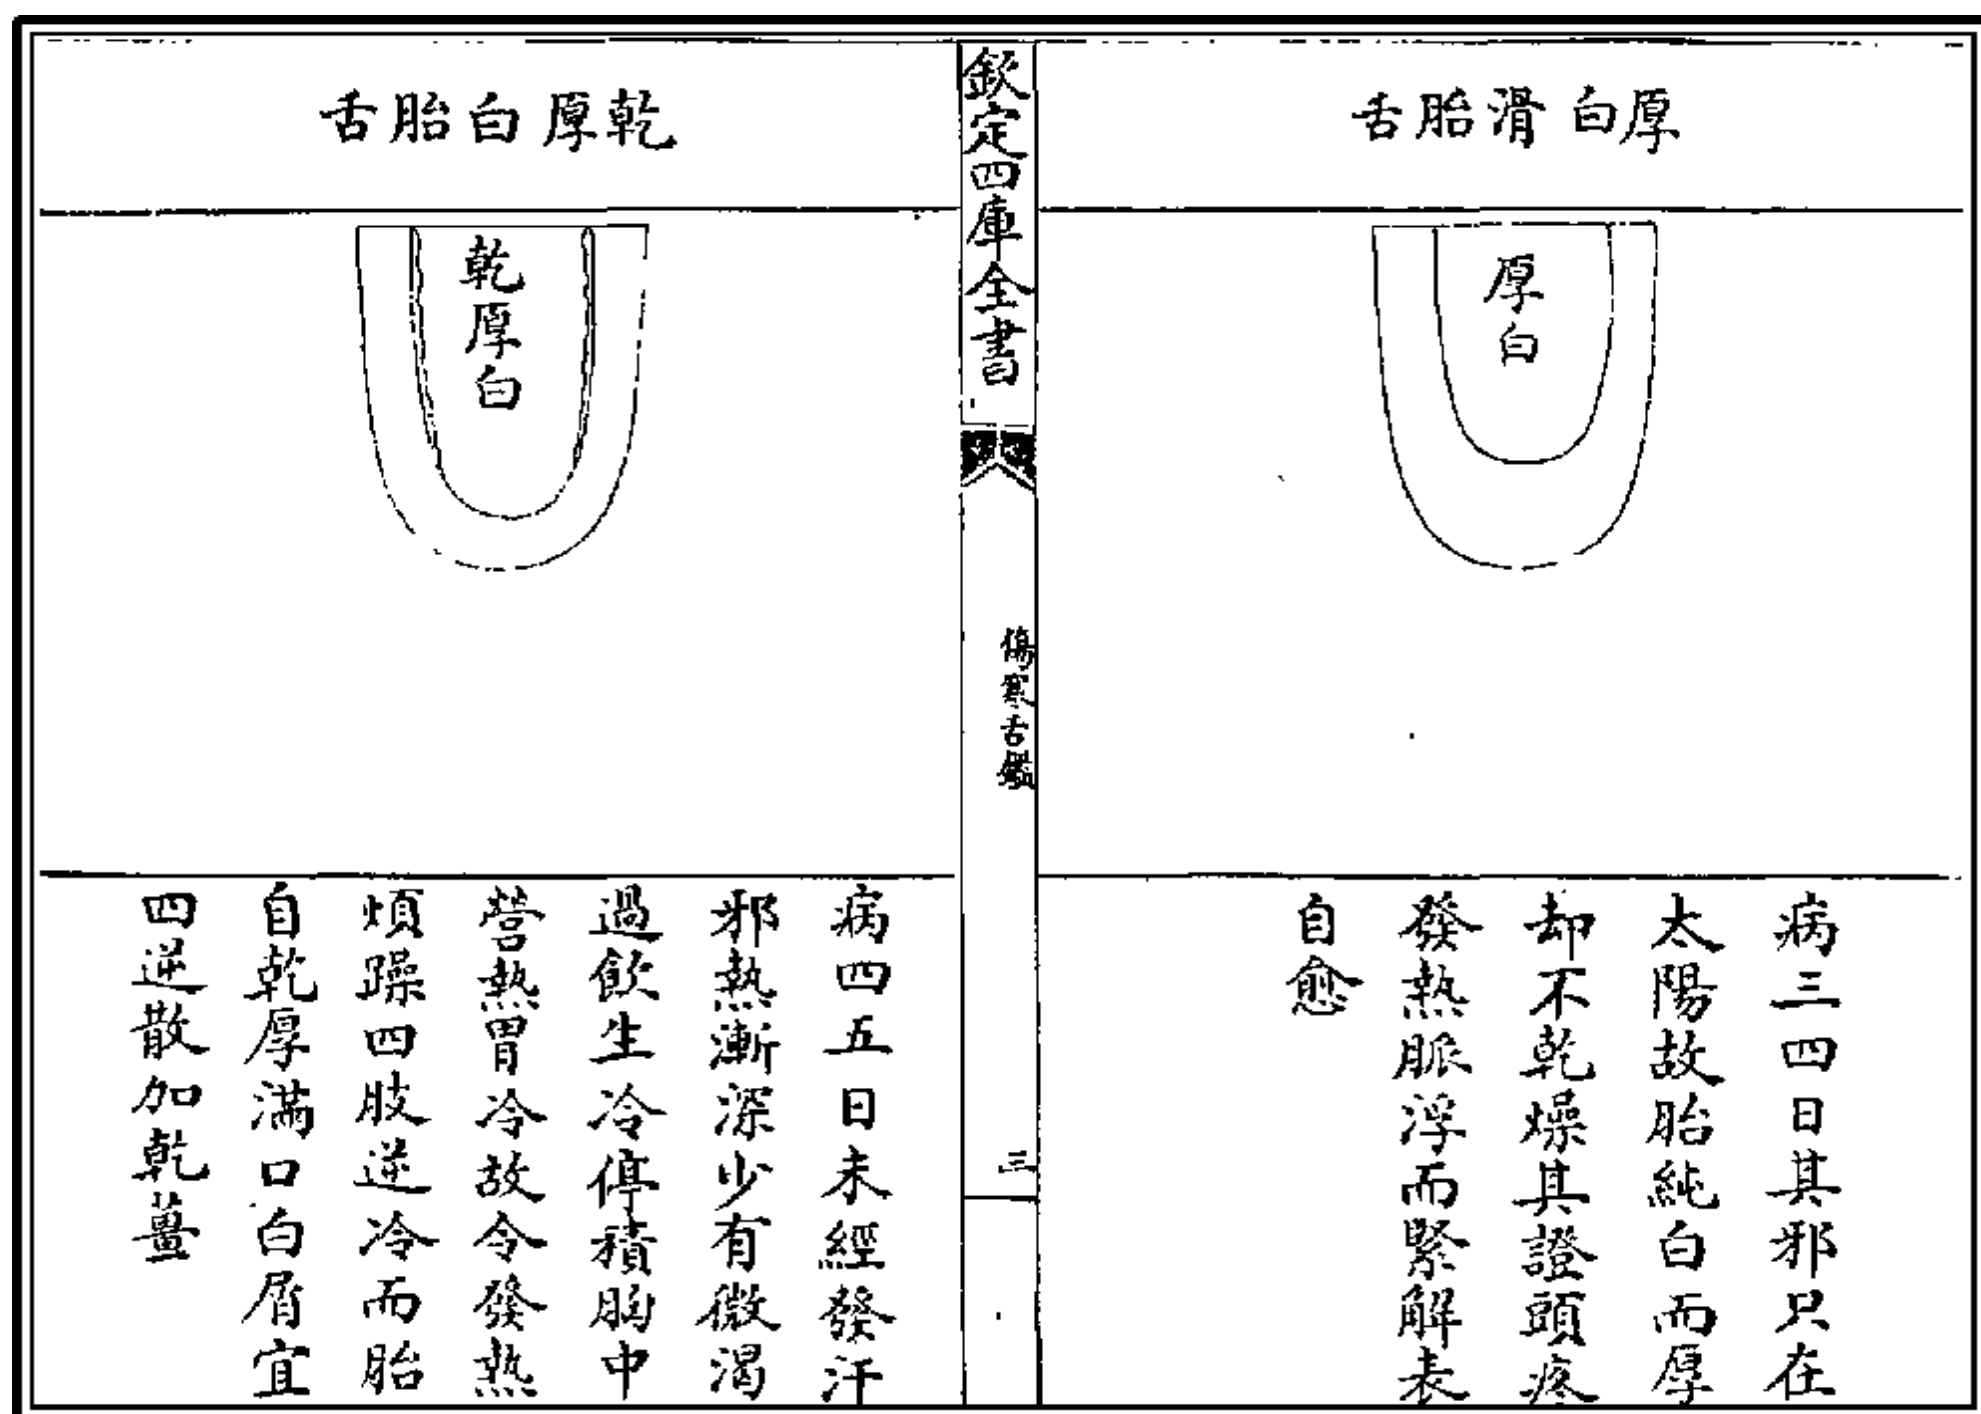 厚白滑胎舌
厚白
病三四日其邪只在
太陽故胎純白而厚
却不乾燥其證頭疼
發熱脈浮而緊解表
自愈
欽定四庫全書
傷寒舌鑑
三
乾厚白胎舌
乾厚白
病四五日未經發汗
邪熱漸深少有微渴
過飲生冷停積胸中
營熱胃冷故令發熱
煩躁四肢逆冷而胎
自乾厚滿口白屑宜
四逆散加乾薑